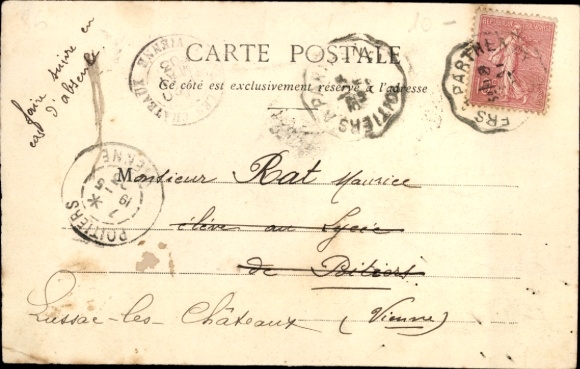 faire suivre en
cas d'absence
CARTE POSTALE
Ce côté est exclusivement réservé à l'adresse
Monsieur Rat Maurice
élève au Lycée
de Poitiers
Lussac-les-Châteaux (Vienne)
POITIERS
VIENNE
PARTHENAY
POITIERS A PARTHENAY